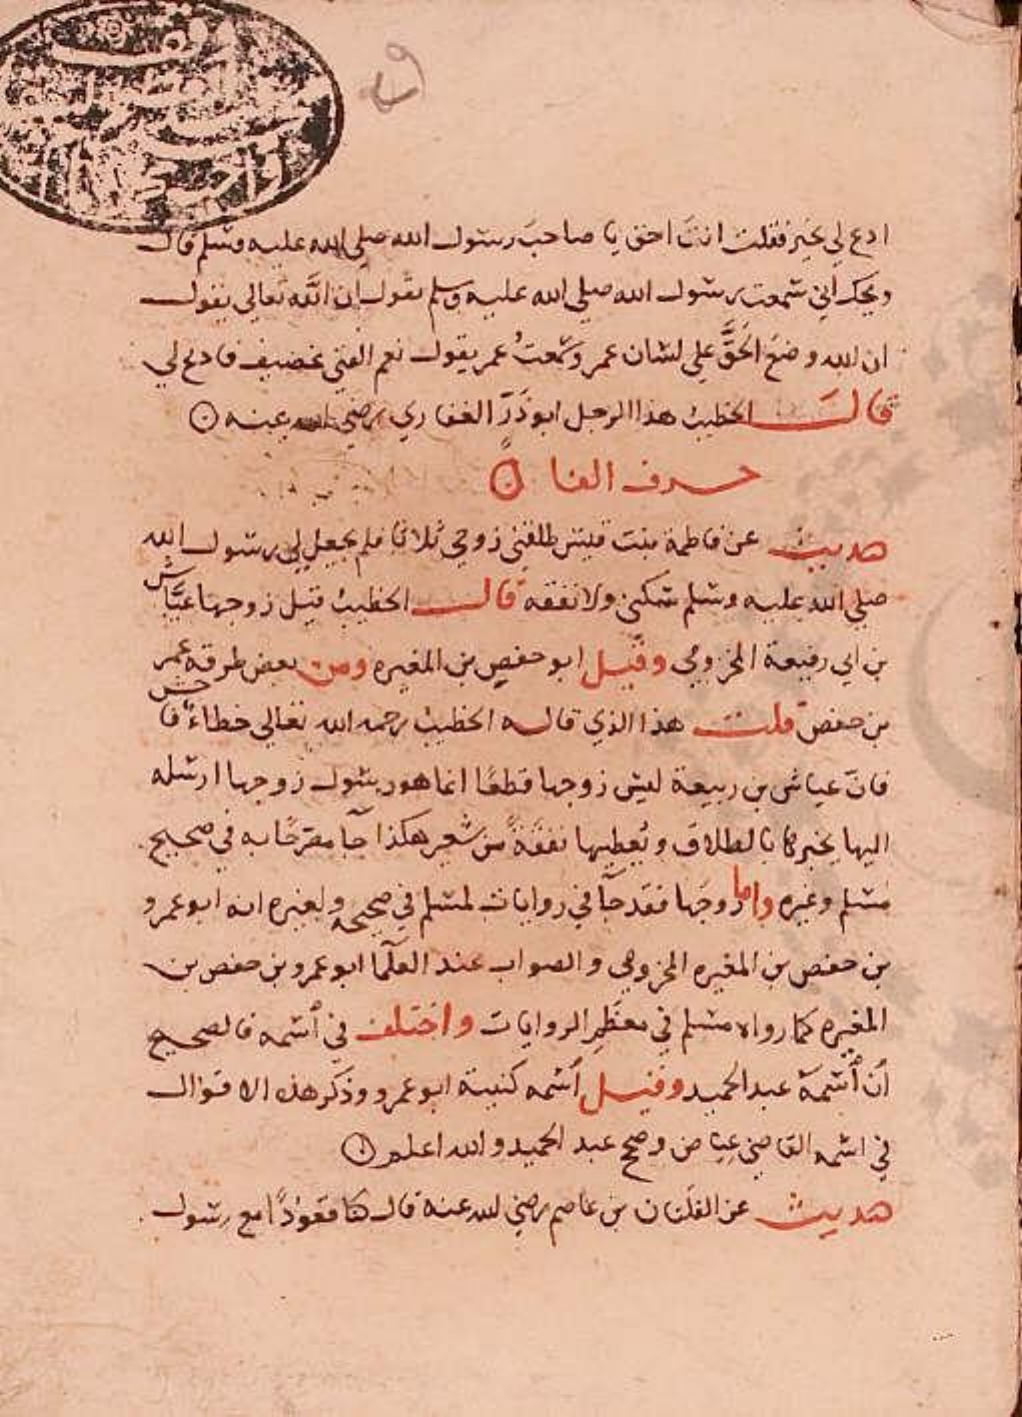 ادع لي بخير فقلت انت احق يا صاحب رسول الله صلي الله عليه وسلم قال
ويحك اني سمعت رسول الله صلي الله عليه وسلم يقول ان الله تعالي يقول
ان لله وضع الحق علي لسان عمر وسمعت عمر يقول نعم الفتي غضيف فادع لي
قال الخطيب هذا الرجل ابو ذر الغفاري رضي الله عنه
حرف الفا
حديث عن فاطمة بنت قيس طلقني زوجي ثلاثا فلم يجعل لي رسول الله
صلي الله عليه وسلم سكني ولا نفقة قال الخطيب قيل زوجها عياش
بن ابي ربيعة المخزومي وقيل ابو حفص بن المغيره ومن بعض طرقه عمر
بن حفص قلت هذا الذي قاله الخطيب رحمه الله تعالي خطاء
فان عياش بن ربيعة ليس زوجها قطعا انما هو رسول زوجها ارسله
اليها يخبرها بالطلاق ويعطيها نفقة من شعير هكذا جا مصرحا به في صحيح
مسلم وغيره واما زوجها فقد جا في روايات لمسلم في صحيحه ولغيره انه ابو عمرو
بن حفص بن المغيره المخزومي والصواب عند العلما ابو عمرو بن حفص بن
المغيره كما رواه مسلم في معظم الروايات واختلف في اسمه فالصحيح
ان اسمه عبد الحميد وقيل اسمه كنيته ابو عمرو وذكر هذه الاقوال
في اسمه القاضي عياض وصحح عبد الحميد والله اعلم
حديث عن الفلتان بن عاصم رضي لله عنه قال كنا قعودا مع رسول